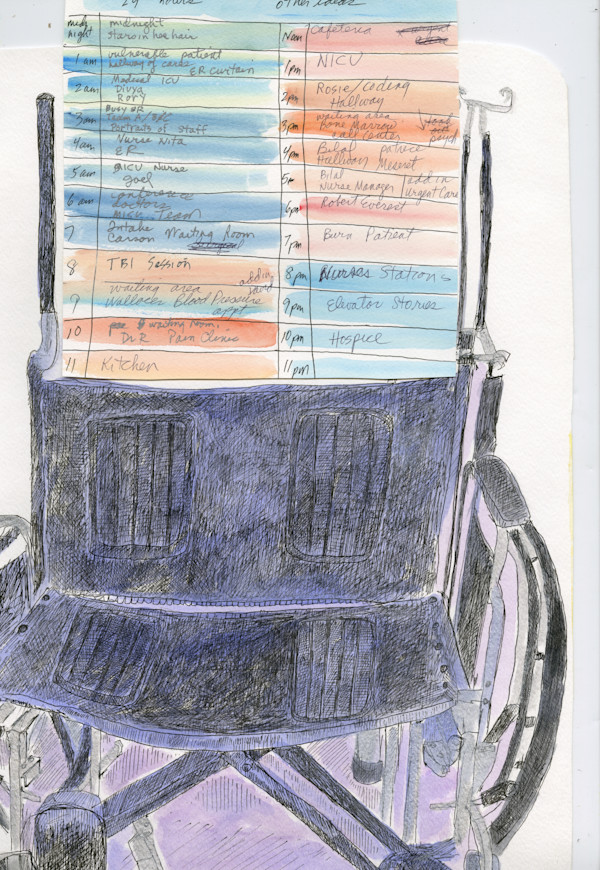 24 hours other ideas
midnight
midnight
stars in her hair
1 am vulnerable patient
hallway of cards
ER curtain
2am Medical ICU
Divya
Rory
Busy ER
3am Team
Portraits of Staff
4am Nurse Nita
ER
5am MICU Nurse
6am conference
doctors
MICU Team
7 Intake
Carson Waiting Room
8 TBI Session
waiting area
add in
9 Wallace Blood Pressure
appt
10 waiting room,
Dr. R Pain Clinic
11 Kitchen
Noon Cafeteria
1pm NICU
2pm Rosie/Coding
Hallway
3pm waiting area
Bone Marrow
Call Center
4pm Bilal patrice
Hallway Meseret
5pm Bilal
Nurse Manager
add in
Urgent Care
6pm Robert Everest
7pm Burn Patient
8pm Nurses Stations
9pm Elevator Stories
10pm Hospice
11pm